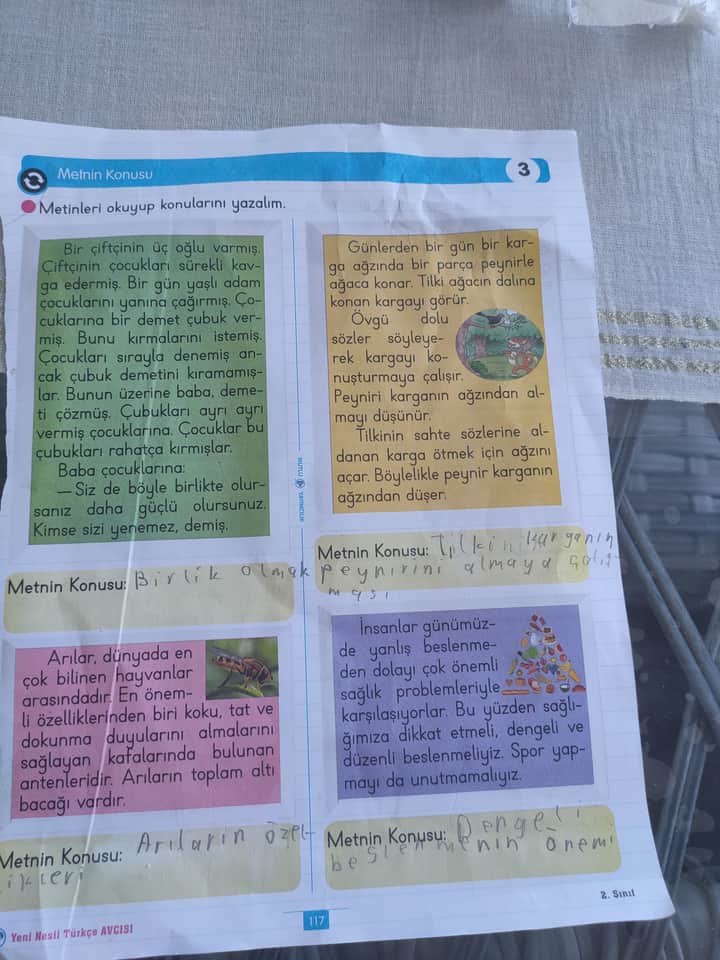 Metnin Konusu
3
Metinleri okuyup konularını yazalım.
Bir çiftçinin üç oğlu varmış.
Çiftçinin çocukları sürekli kav-
ga edermiş. Bir gün yaşlı adam
çocuklarını yanına çağırmış. Ço-
cuklarına bir demet çubuk ver-
miş. Bunu kırmalarını istemiş.
Çocukları sırayla denemiş an-
cak çubuk demetini kıramamış-
lar. Bunun üzerine baba, deme-
ti çözmüş. Çubukları ayrı ayrı
vermiş çocuklarına. Çocuklar bu
çubukları rahatça kırmışlar.
Baba çocuklarına:
— Siz de böyle birlikte olur-
sanız daha güçlü olursunuz.
Kimse sizi yenemez, demiş.
Metnin Konusu: Birlik olmak
Günlerden bir gün bir kar-
ga ağzında bir parça peynirle
ağaca konar. Tilki ağacın dalına
konan kargayı görür.
Övgü dolu
sözler söyleye-
rek kargayı ko-
nuşturmaya çalışır.
Peyniri karganın ağzından al-
mayı düşünür.
Tilkinin sahte sözlerine al-
danan karga ötmek için ağzını
açar. Böylelikle peynir karganın
ağzından düşer.
Metnin Konusu: Tilkinin karganın
peynirini almaya çalış-
ması
MUTLU YAYINCILIK
Arılar, dünyada en
çok bilinen hayvanlar
arasındadır. En önem-
li özelliklerinden biri koku, tat ve
dokunma duyularını almalarını
sağlayan kafalarında bulunan
antenleridir. Arıların toplam altı
bacağı vardır.
Metnin Konusu: Arıların özel-
ikleri
İnsanlar günümüz-
de yanlış beslenme-
den dolayı çok önemli
sağlık problemleriyle
karşılaşıyorlar. Bu yüzden sağlı-
ğımıza dikkat etmeli, dengeli ve
düzenli beslenmeliyiz. Spor yap-
mayı da unutmamalıyız.
Metnin Konusu: Dengeli
beslenmenin önemi
Yeni Nesil Türkçe AVCISI
117
2. Sınıf